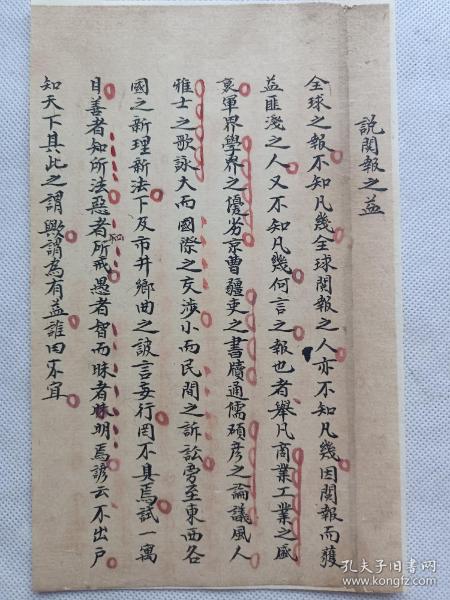 說閱報之益
全球之報不知凡幾全球閱報之人亦不知凡幾因閱報而獲
益匪淺之人又不知凡幾何言之報也者舉凡商業工業之盛
衰軍界學界之優劣京曹疆吏之書牘通儒碩彥之論議風人
雅士之歌詠大而國際之交涉小而民間之訴訟旁至東西各
國之新理新法下及市井鄉曲之詖言妄行罔不具焉試一寓
目善者知所法惡者知所戒愚者智而昧者明焉諺云不出戶
知天下其此之謂歟謂為有益誰曰不宜
孔夫子旧书网
www.kongfz.com